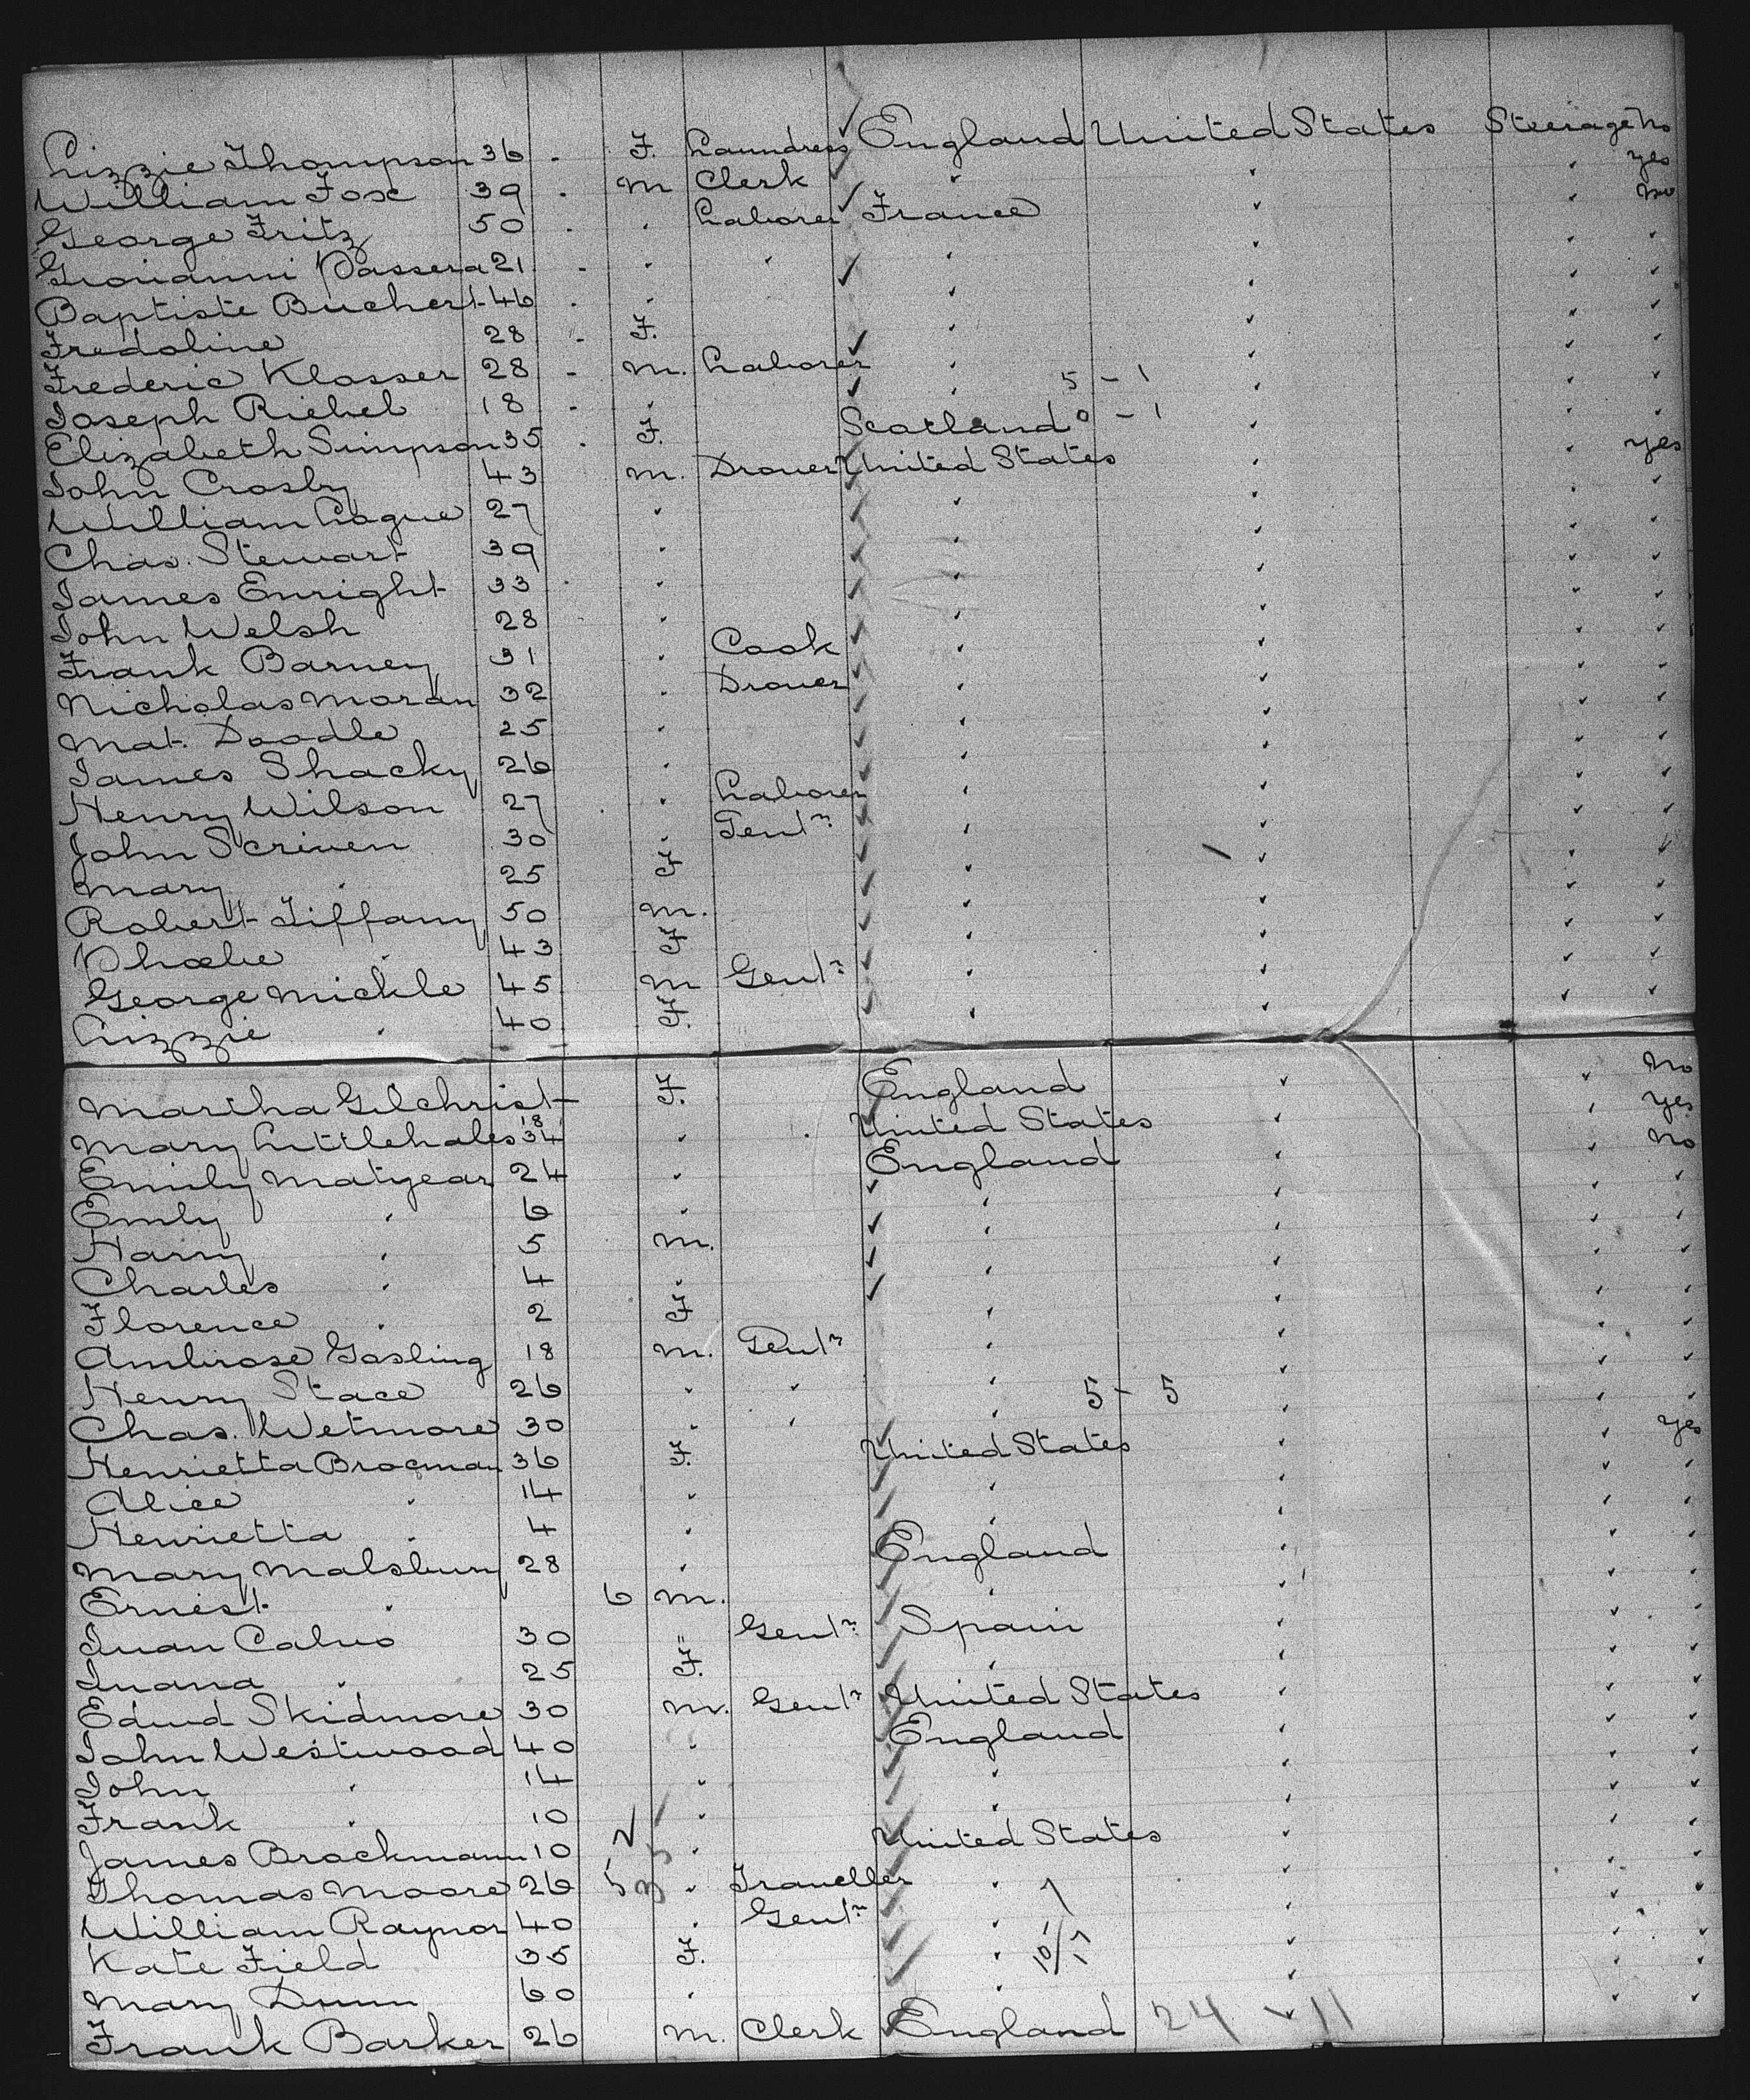 Lizzie Thompson 36 . F. Laundress England United States Steerage No
William Fox 39 . M Clerk " " " yes
George Fritz 50 . " Laborer France " " no
Giovanni Passera 21 . " " " " " "
Baptiste Buchert 46 . " " " " "
Fredoline 28 . F. " " " "
Frederic Klosser 28 . M. Laborer " " " "
Joseph Riehel 18 . " " 5 - 1 " " "
Elizabeth Simpson 35 . F. Scotland 0 - 1 " " "
John Crosby 43 M. Drover United States " " yes
William Cogue 27 " " " " "
Chas. Stewart 39 " " " " "
James Enright 33 " " " " "
John Welsh 28 " " " " "
Frank Barney 31 " Cook " " " "
Nicholas Moran 32 " Drover " " " "
Mat. Doodle 25 " " " " "
James Shacky 26 " " " " "
Henry Wilson 27 " Laborer " " " "
John Scriven 30 " Gentn " " " "
Mary " 25 F " " " "
Robert Tiffany 50 M. " " " "
Phoebe " 43 F " " " "
George Mickle 45 M Gentn " " " "
Lizzie " 40 F. " " " "
Martha Gilchrist 18 F. England " " No
Mary Littlehales 34 " United States " " yes
Emily Matyear 24 " England " " No
Emily " 6 " " " " "
Harry " 5 M. " " " "
Charles " 4 " " " " "
Florence " 2 F " " " "
Ambrose Gosling 18 M. Gentn " " " "
Henry Stace 26 " " " 5 - 5 " " "
Chas. Wetmore 30 " " " " " "
Henrietta Brocman 36 F. United States " " yes
Alice " 14 " " " " "
Henrietta " 4 " " " " "
Mary Malsbury 28 " England " " "
Ernest " 6 M. " " " "
Juan Calvo 30 " Gentn Spain " " "
Juana " 25 F. " " " "
Edwd Skidmore 30 M. Gentn United States " " "
John Westwood 40 " England " " "
John " 14 " " " " "
Frank " 10 " " " " "
James Brockmann 10 " United States " " "
Thomas Moore 26 " Traveller " " " "
William Raynor 40 " Gentn " " " "
Kate Field 35 F. " " " "
Mary Dunn 60 " " " " "
Frank Barker 26 M. Clerk England 24 - 11 " "